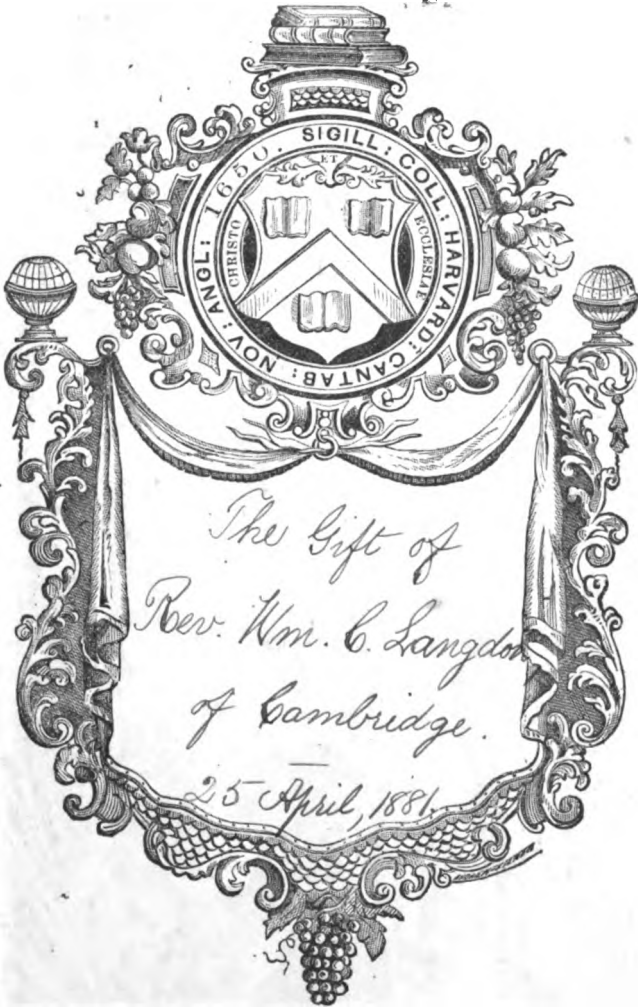 SIGILL: COLL: HARVARD: CANTAB: NOV: ANGL: 1650.
CHRISTO ET ECCLESIAE
The Gift of
Rev. Wm. C. Langdon
of Cambridge.
25 April, 1881.